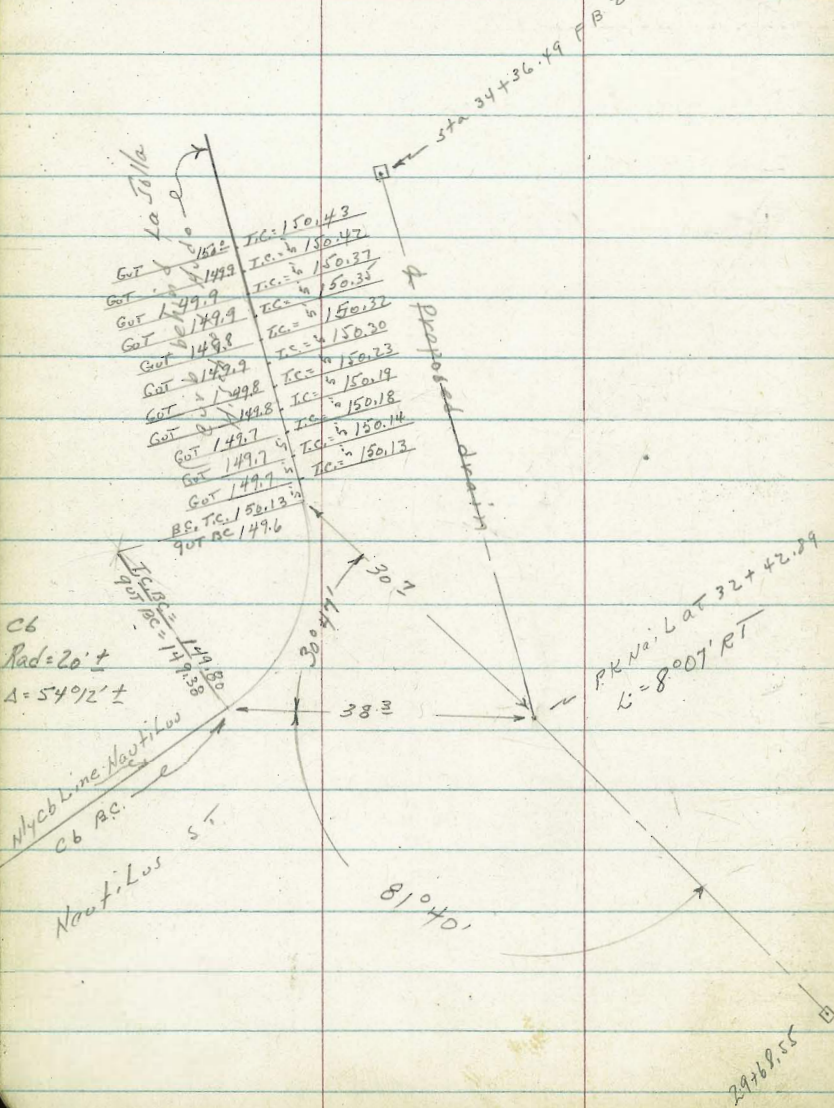 Sta 34+36.49 F B
La Jolla
GUT 150± T.C. = 150.43
GUT 149.9 T.C. = is 150.42
GUT 149.9 T.C. = is 150.37
GUT 149.9 T.C. = is 150.35
GUT 149.8 T.C. = is 150.32
GUT 149.9 T.C. = is 150.30
GUT 149.8 T.C. = is 150.23
GUT 149.8 T.C. = is 150.19
GUT 149.7 T.C. = is 150.18
GUT 149.7 is T.C. = is 150.14
GUT 149.7 is T.C. = is 150.13
B.C. T.C. 150.13 is
gUT BC 149.6
℄ Proposed drain
T.C. BC = 149.80
gUT BC = 149.38
30°47'
38.3
P.K Nail L at 32+42.89
L = 8°07' RT
Cb
Rad = 20' ±
Δ = 54°12' ±
Nly Cb Line Nautilus
Cb B.C.
Nautilus St.
81°40'
29+68.55